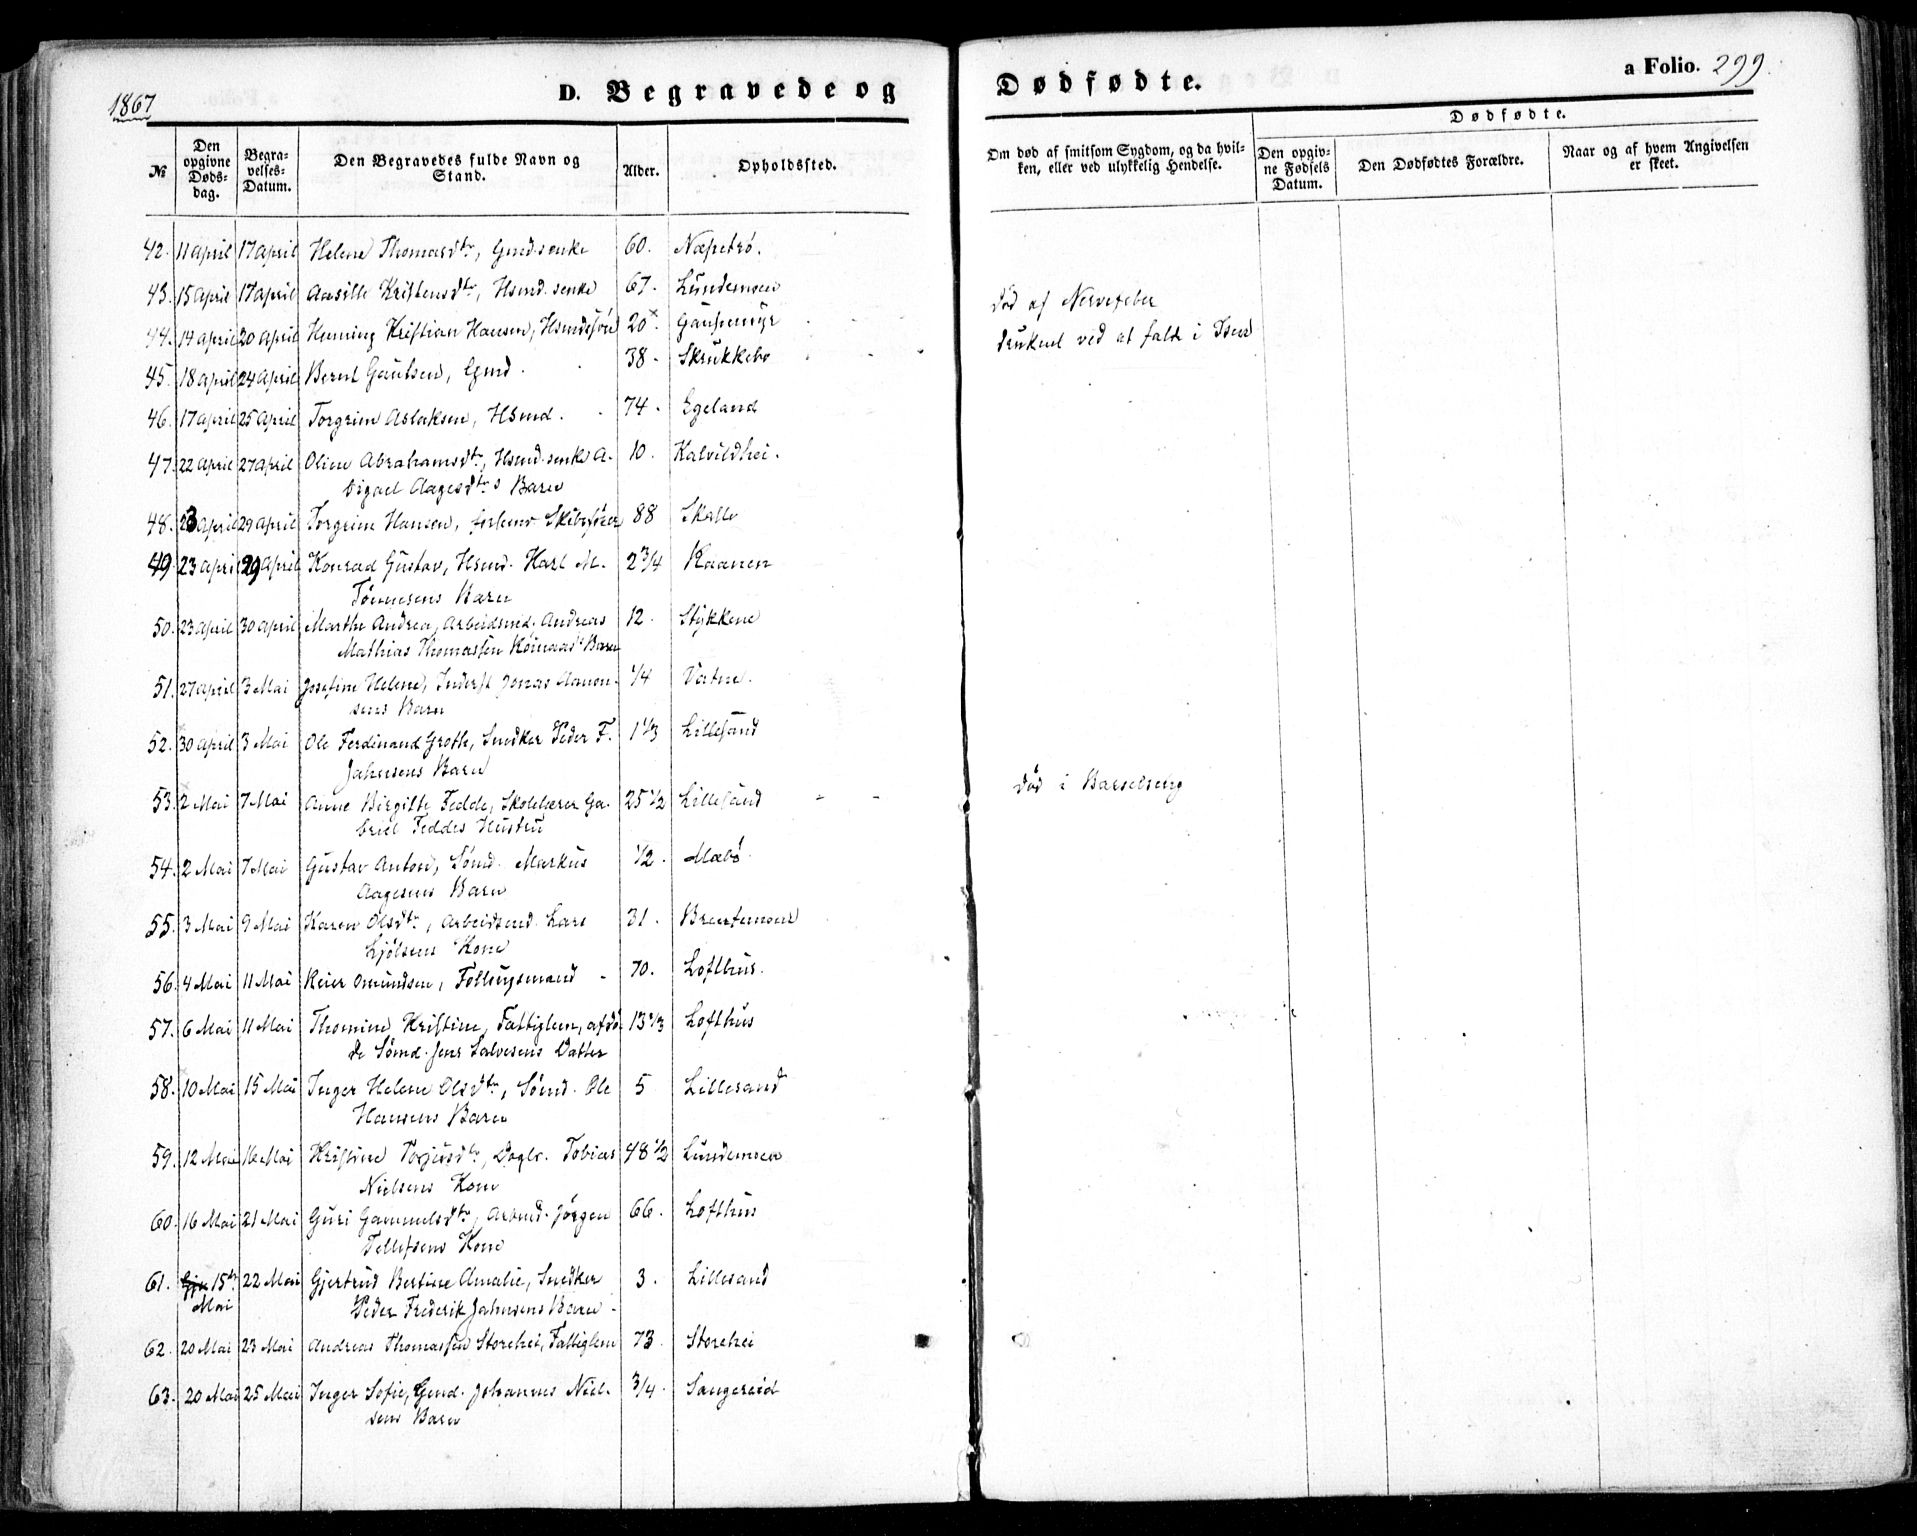 1867
D. Begravede og Dødfødte.
a Folio. 299.
№
Den opgivne Døds-dag.
Begra-velses-Datum.
Den Begravedes fulde Navn og Stand.
Alder.
Opholdssted.
Om død af smitsom Sygdom, og da hvil-ken, eller ved ulykkelig Hendelse.
Dødfødte.
Den opgiv-ne Fødsels Datum.
Den Dødfødtes Forældre.
Naar og af hvem Angivelsen er skeet.
42. 11 April 17 April Helene Thomasdtr, Gmdsenke 60. Næpetrø.
43. 15 April 17 April Aasille Kristensdtr, Hsmd.senke 67. Lundemoen død af Nervefeber
44. 14 April 20 April Henning Kristian Hansen, Hsmdssøn 20 Gaupemyr druknet ved at falde i Isen
45. 18 April 24 April Bernt Gautsen, Gmd. 38. Skrukkebo
46. 17 April 25 April Torgrim Aslaksen, Hsmd. 74. Egeland
47. 22 April 27 April Oline Abrahamsdtr, Hsmd.senke A- 10. Kalvildhei.
bigael Aagesdtrs Barn
48. 23 April 29 April Torgrim Hansen, forhenv. Skibsfører 88 Skalle
49 23 April 29 April Konrad Gustav, Hsmd. Karl M. 2 3/4 Kaanen
Tønnesens Barn
50. 23 April 30 April Marthe Andrea, Arbeidsmd. Andreas 12. Stykkene
Mathias Thomassen Barn
51. 27 April 3 Mai Josefine Helene, Inderst Jonas Aanon- 1/4 Vatne.
sens Barn
52. 30 April 3 Mai Ole Ferdinand Groth, Snedker Peder F. 1 1/3 Lillesand
Jahnsens Barn
53. 2 Mai 7 Mai Anne Birgitte Fedde, Skolelærer Ga- 25 1/2 Lillesand død i Barselseng
briel Feddes Hustru
54. 2 Mai 7 Mai Gustav Anton, Sømd. Markus 1/2. Mæbø.
Aagesens Barn
55. 3 Mai 9 Mai Karen Olsdtr, Arbeidsmd. Lars 31. Bræstemoen
Ljølsens Kone
56. 4 Mai 11 Mai Reier Omundsen, Føllugsmand 70. Lofthus.
57. 6 Mai 11 Mai Thomine Kristine, Fattiglem, afdø- 13 2/3 Lofthus
de Sømd. Jens Salvesens Datter
58. 10 Mai 15 Mai Inger Helene Olsdtr, Sømd. Ole 5 Lillesand
Hansens Barn
59. 12 Mai 16 Mai Kristine Torjusdtr, Daglr. Tobias 48 1/2 Lundemoen
Nielsens Kone
60. 16 Mai 21 Mai Guri Gammelsdtr, Arbmd. Jørgen 66. Lofthus
Tellefsens Kone
61. 15de Mai 22 Mai Gjertrud Bertine Amalie, Snedker 3. Lillesand
Peder Frederik Jahnsens Barn
62. 20 Mai 23 Mai Andreas Thomassen Storehei, Fattiglem 73. Storehei
63. 20 Mai 25 Mai Inger Sofie, Gmd. Johannes Niel- 3/4. Sangereid
sens Barn